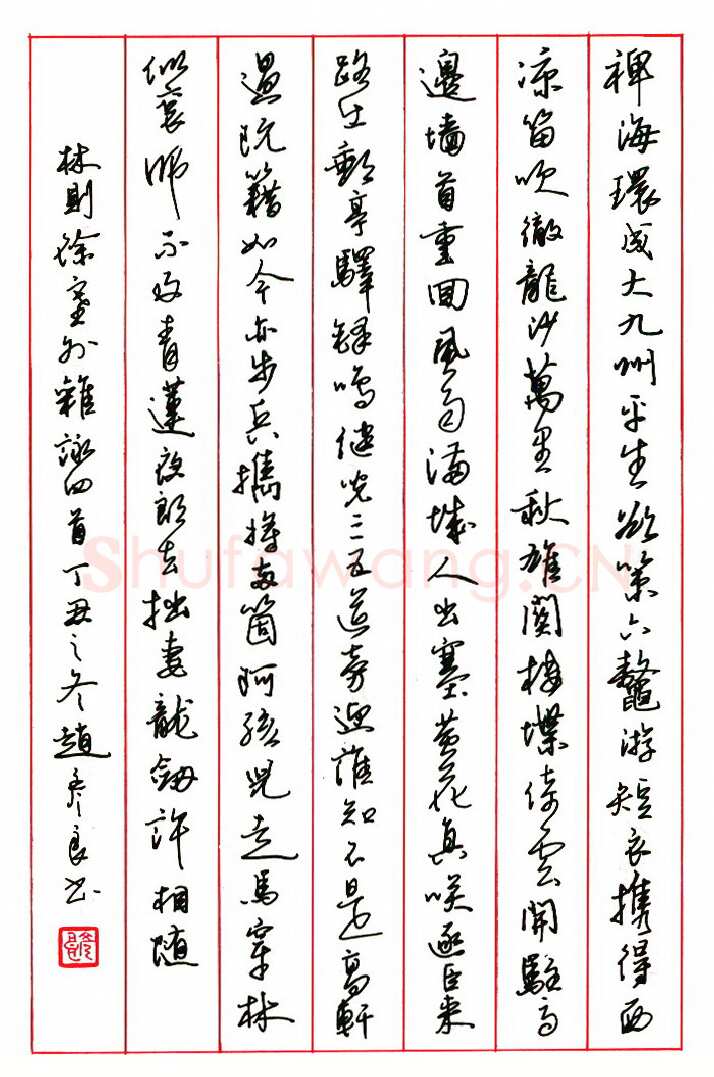 裨海環成大九州平生欲策六鼇游短衣携得西
涼笛吹徹龍沙萬里秋雄關樓堞倚雲開駐馬
邊墻首重回風雨滿城人出塞黄花真咲逐臣來
路出郵亭驛鐸鳴健児三五道旁迎誰知不是高軒
過阮籍如今亦步兵攜將兩箇阿孩児走馬穿林
似衮師不及青蓮夜郎去拙妻龍劍許相随
林則徐塞外雜詠四首丁丑之冬趙彥良书
Shufawang.CN